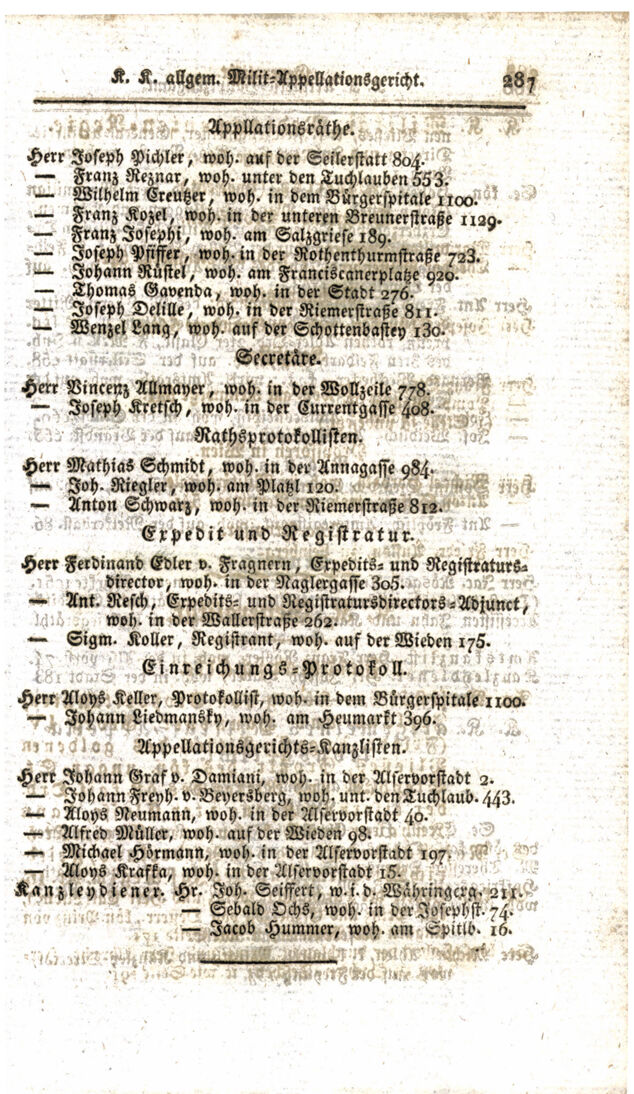 K. K. allgem. Milit-Appellationsgericht. 287
Appllationsräthe.
Herr Joseph Pichler, woh. auf der Seilerstatt 804.
— Franz Reznar, woh. unter den Tuchlauben 553.
— Wilhelm Creutzer, woh. in dem Bürgerspitale 1100.
— Franz Kozel, woh. in der unteren Breunerstraße 1129.
— Franz Josephi, woh. am Salzgriese 189.
— Joseph Pfiffer, woh. in der Rothenthurmstraße 723.
— Johann Rüstel, woh. am Franciscanerplatze 920.
— Thomas Gavenda, woh. in der Stadt 276.
— Joseph Delille, woh. in der Riemerstraße 811.
— Wenzel Lang, woh. auf der Schottenbastey 130.
Secretäre.
Herr Vincenz Allmayer, woh. in der Wollzeile 778.
— Joseph Kretsch, woh. in der Currentgasse 408.
Rathsprotokollisten.
Herr Mathias Schmidt, woh. in der Annagasse 984.
— Joh. Riegler, woh. am Platzl 120.
— Anton Schwarz, woh. in der Riemerstraße 812.
Expedit und Registratur.
Herr Ferdinand Edler v. Fragnern, Expedits- und Registraturs-
director, woh. in der Naglergasse 305.
— Ant. Resch, Expedits- und Registratursdirectors-Adjunct,
woh. in der Wallerstraße 262.
— Sigm. Koller, Registrant, woh. auf der Wieden 175.
Einreichungs-Protokoll.
Herr Aloys Keller, Protokollist, woh. in dem Bürgerspitale 1100.
— Johann Liedmansky, woh. am Heumarkt 396.
Appellationsgerichts-Kanzlisten.
Herr Johann Graf v. Damiani, woh. in der Alservorstadt 2.
— Johann Freyh. v. Beyersberg, woh. unt. den Tuchlaub. 443.
— Aloys Neumann, woh. in der Alservorstadt 40.
— Alfred Müller, woh. auf der Wieden 98.
— Michael Hörmann, woh. in der Alservorstadt 197.
— Aloys Kraffa, woh. in der Alservorstadt 15.
Kanzleydiener. Hr. Joh. Seiffert, w. i. d. Währingerg. 211.
— Sebald Ochs, woh. in der Josephst. 74.
— Jacob Hummer, woh. am Spitlb. 16.